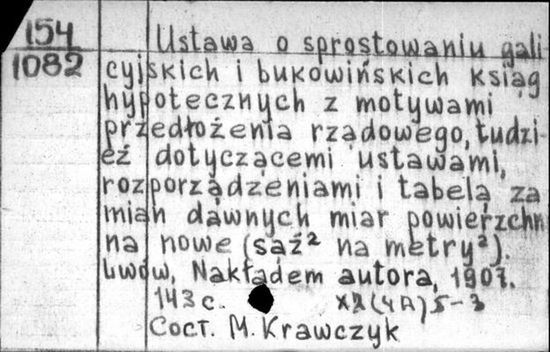 154
1082
Ustawa o sprostowaniu gali
cyjskich i bukowińskich ksiąg
hypotecznych z motywami
przedłożenia rządowego, tudzi-
eź dotyczącemi ustawami,
rozporządzeniami i tabelą za
mian dawnych miar powierzchn
na nowe (saź² na metry²).
Lwów, Nakładem autora, 1907.
143 c. (4A) 5-3
Сост. M. Krawczyk